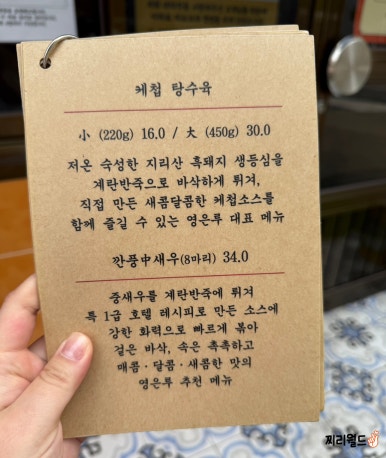 케첩 탕수육
小 (220g) 16.0 / 大 (450g) 30.0
저온 숙성한 지리산 흑돼지 생등심을
계란반죽으로 바삭하게 튀겨,
직접 만든 새콤달콤한 케첩소스를
함께 즐길 수 있는 영은루 대표 메뉴
깐풍中새우(8마리) 34.0
중새우를 계란반죽에 튀겨
특 1급 호텔 레시피로 만든 소스에
강한 화력으로 빠르게 볶아
겉은 바삭, 속은 촉촉하고
매콤·달콤·새콤한 맛의
영은루 추천 메뉴
찌리월드